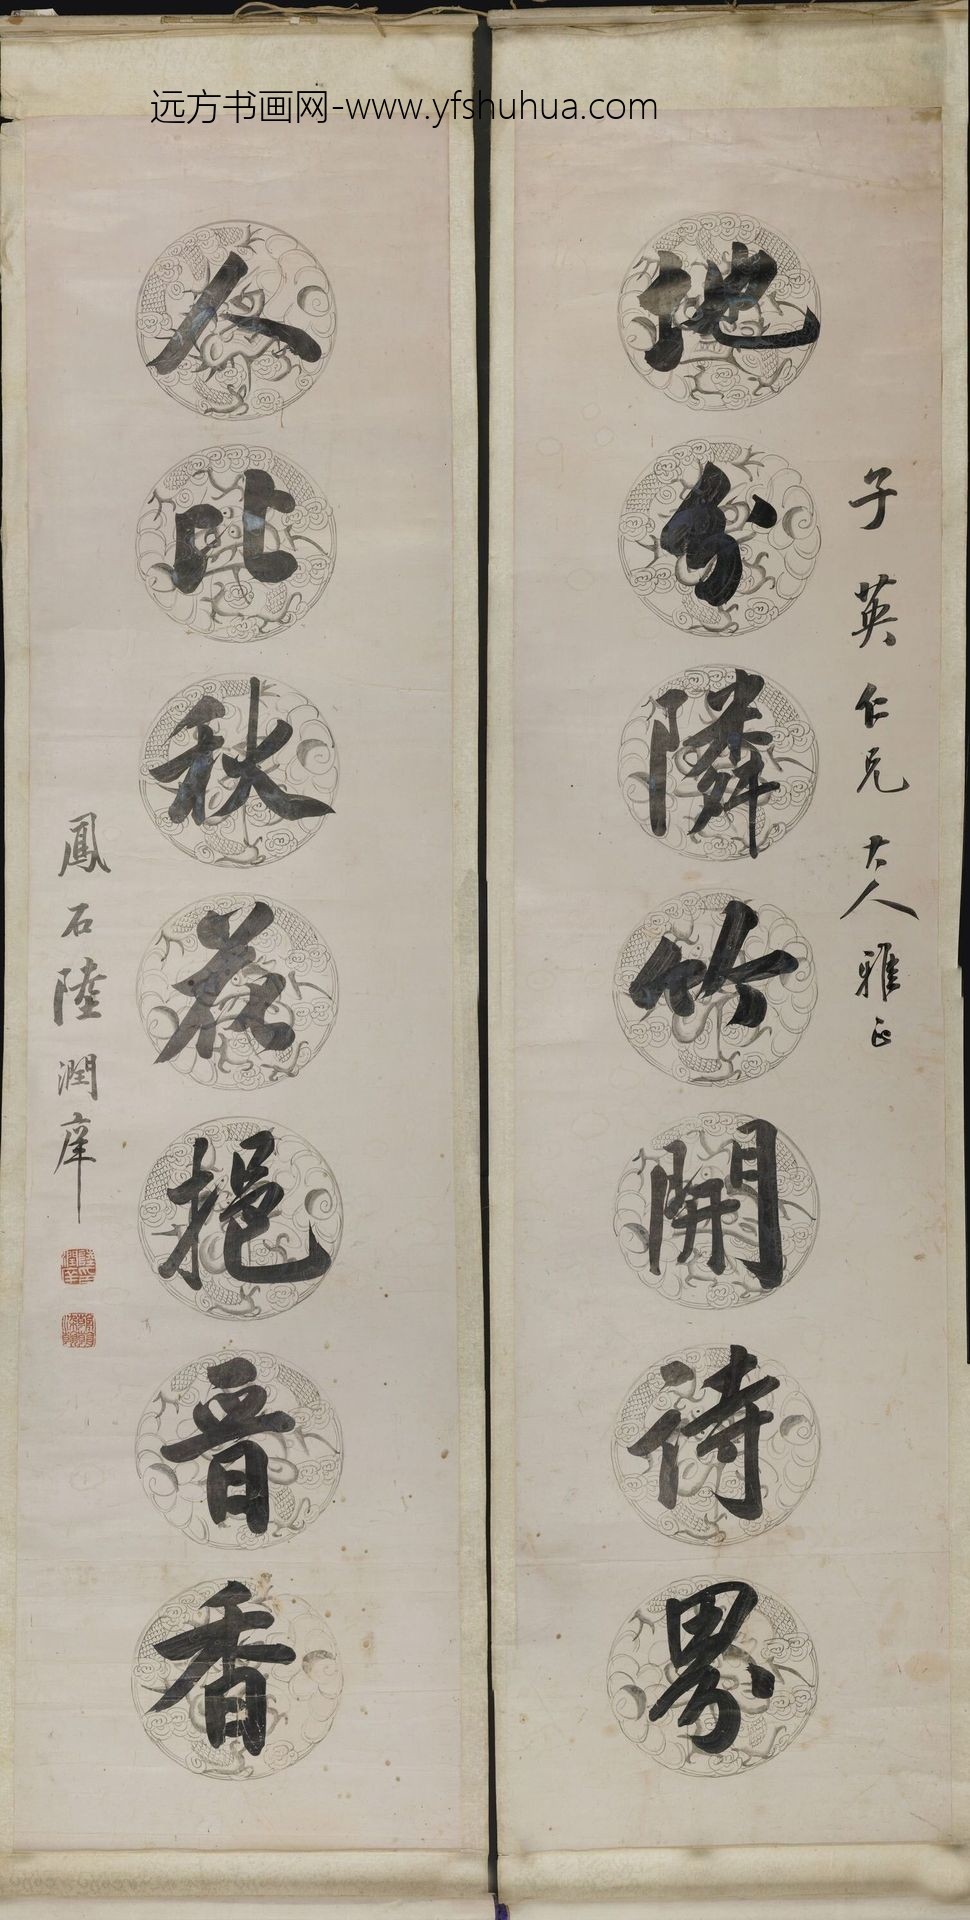 远方书画网-www.yfshuhua.com
子英仁兄大人雅正
地分隣竹開詩界
人比秋花挹晉香
鳳石陸潤庠